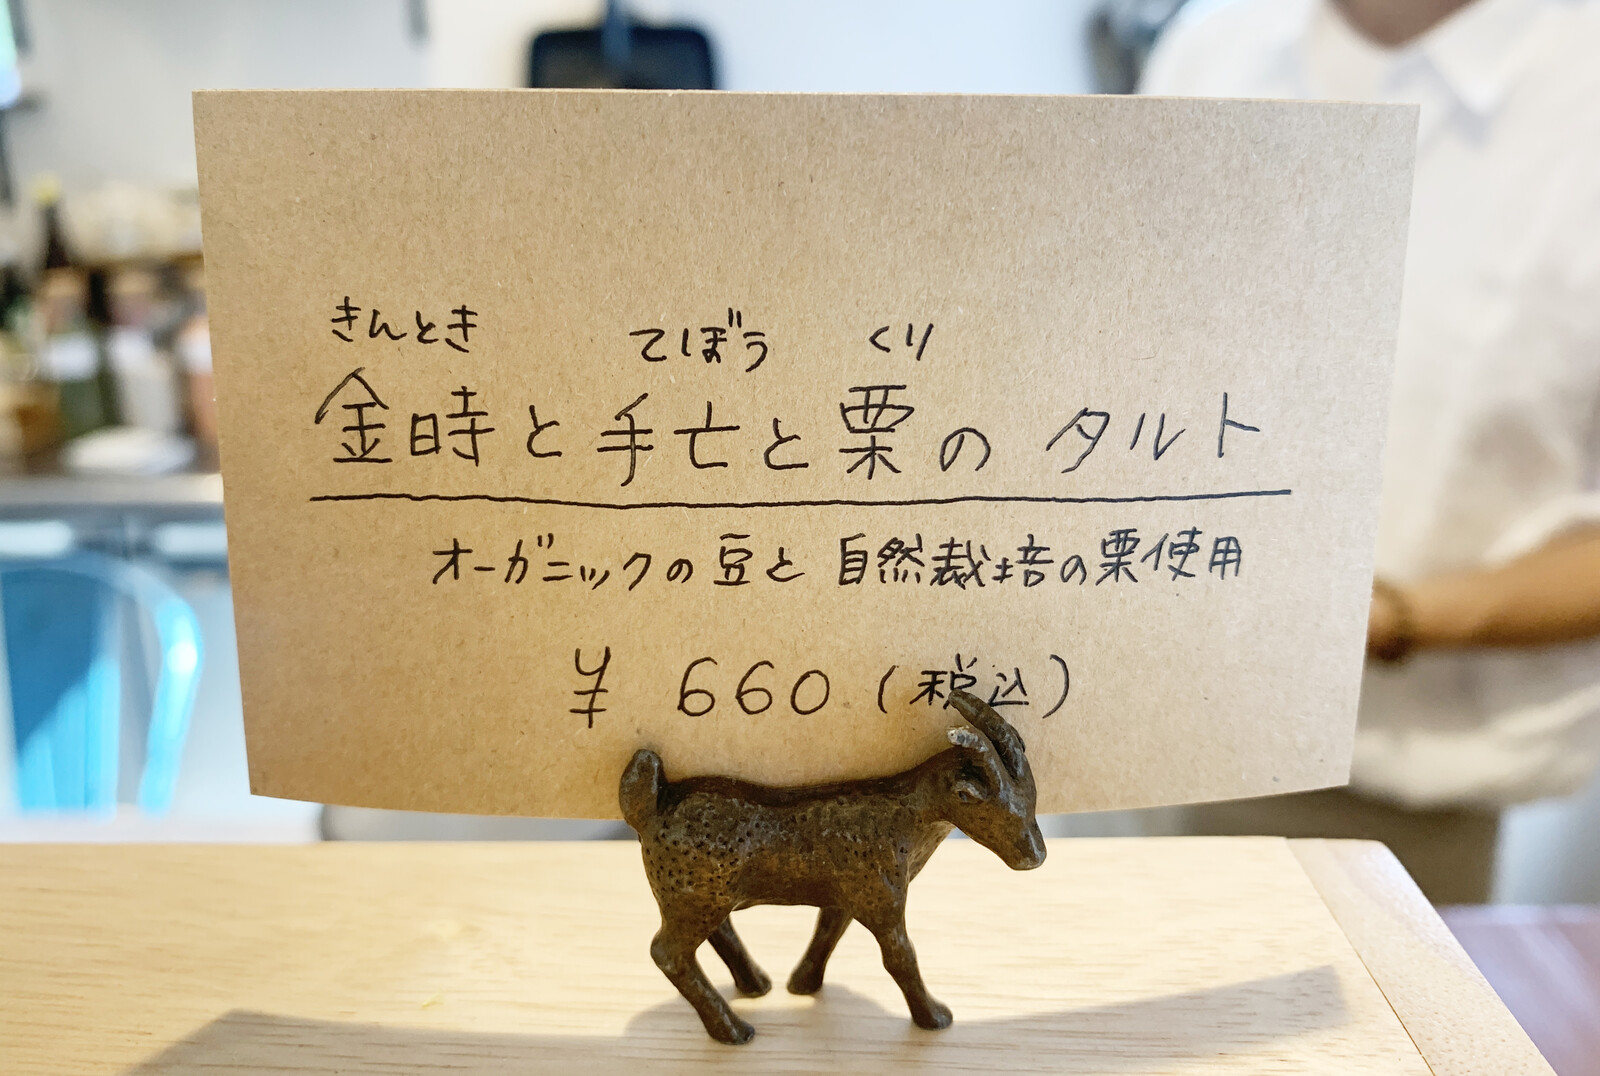 きんとき てぼう くり
金時と手亡と栗の タルト
オーガニックの豆と 自然栽培の栗使用
¥ 660 (税込)